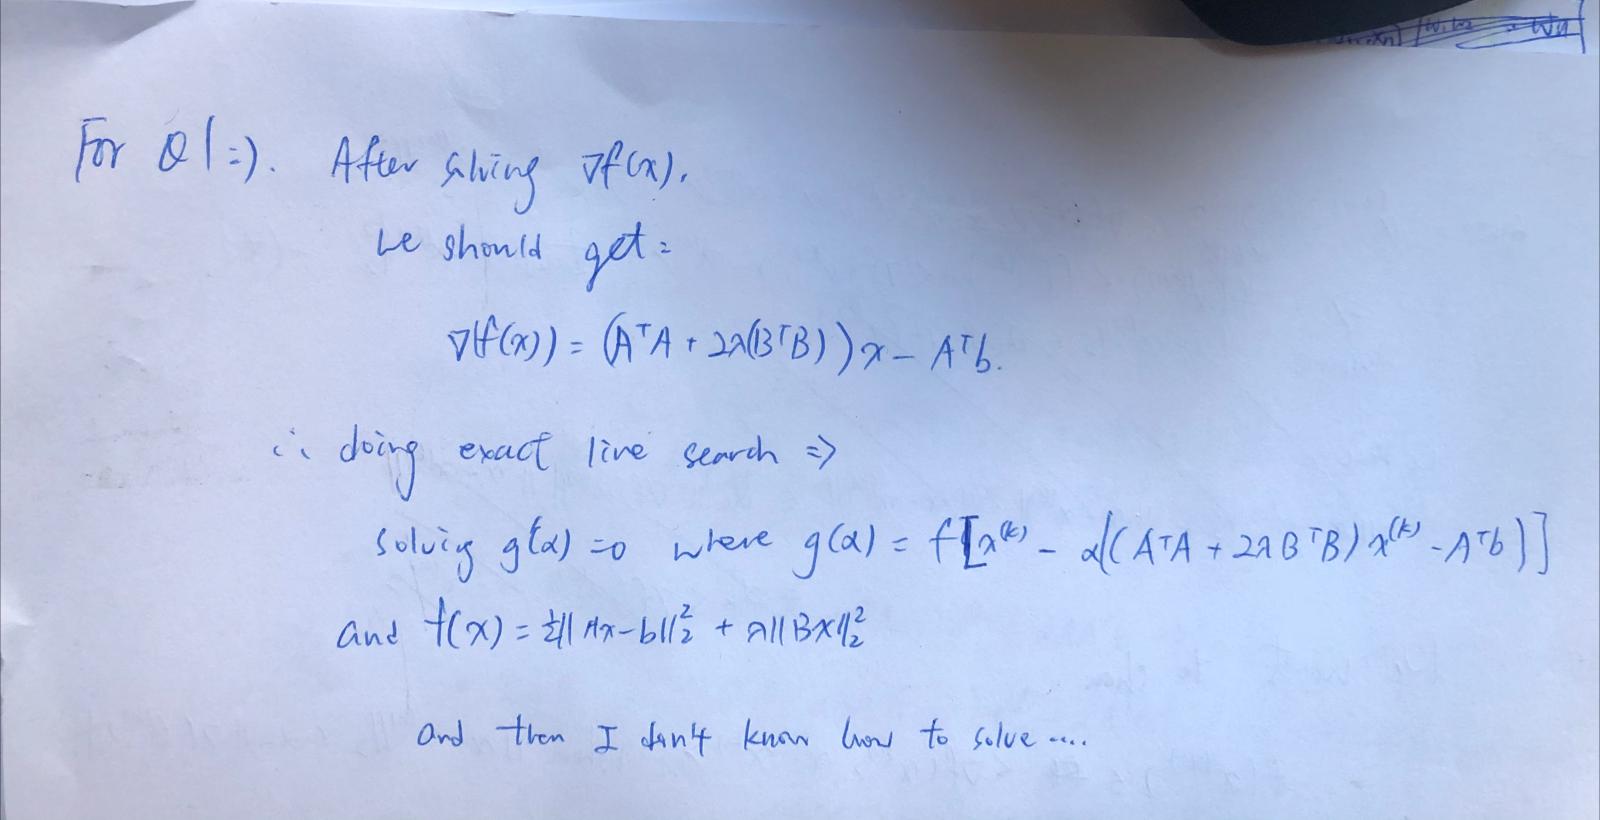 For Q1:). After solving ∇f(x),
we should get:
∇(f(x)) = (AᵀA + 2λ(BᵀB))x - Aᵀb.
∴ doing exact line search ⇒
solving g'(α) = 0 where g(α) = f[x⁽ᵏ⁾ - α((AᵀA + 2λBᵀB)x⁽ᵏ⁾ - Aᵀb)]
and f(x) = ½||Ax-b||₂² + λ||Bx||₂²
and then I don't know how to solve....